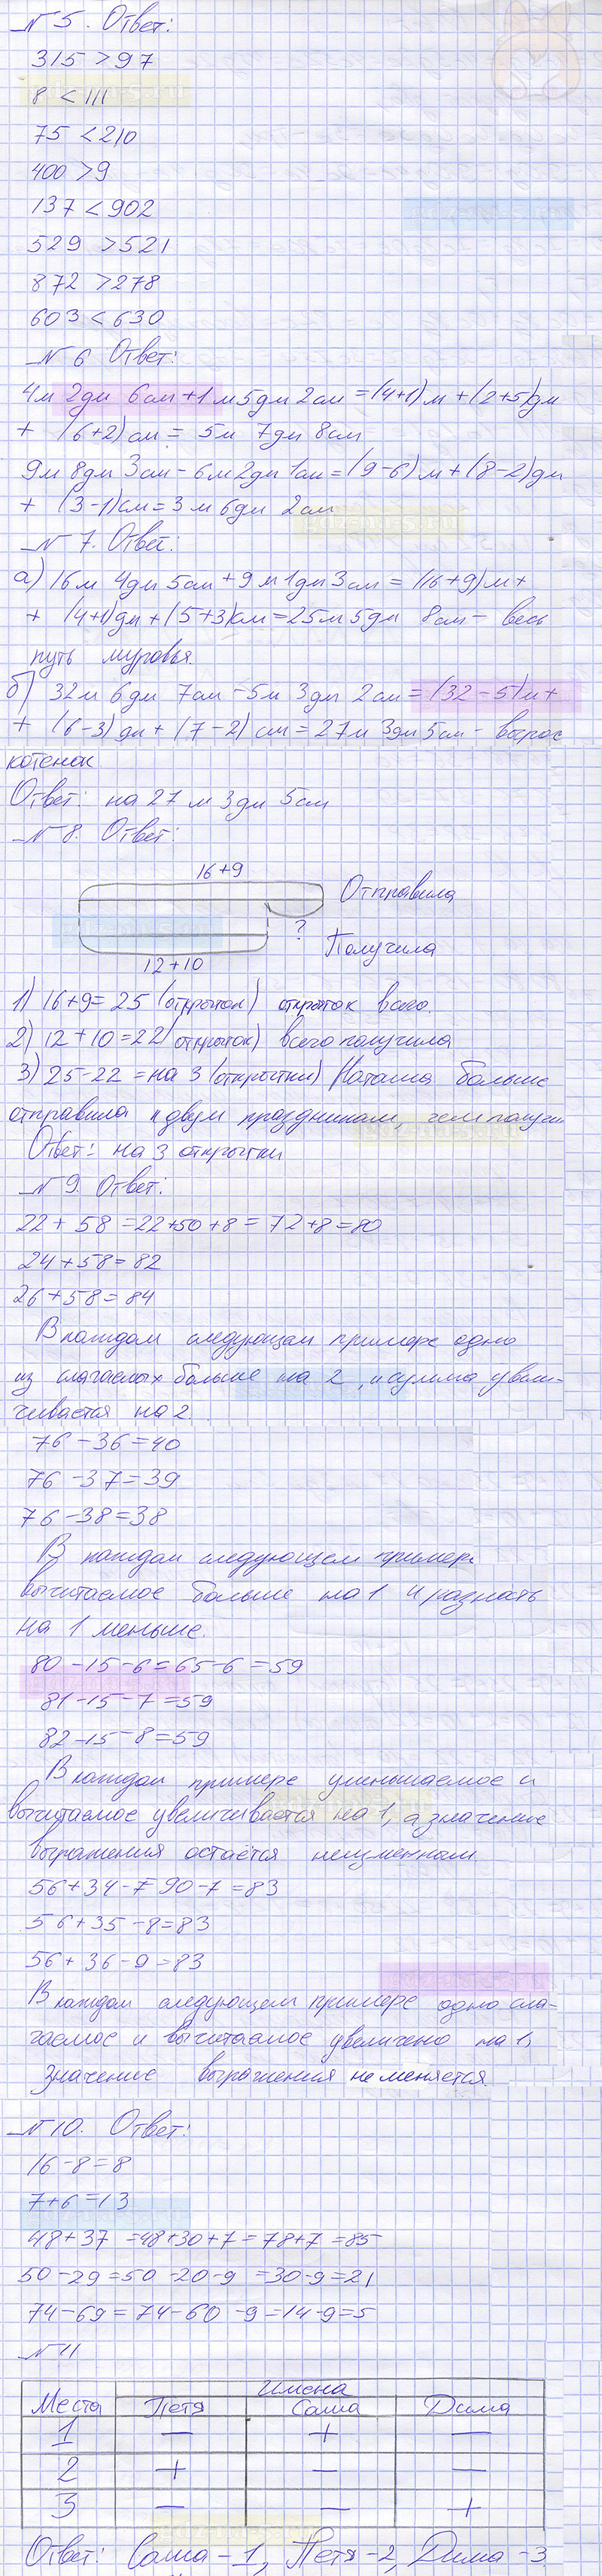 № 5. Ответ:
315 > 97
8 < 111
75 < 210
400 > 9
137 < 902
529 > 521
872 > 278
603 < 630
№ 6 Ответ:
4м 2дм 6см + 1м 5дм 2см = (4+1)м + (2+5)дм
+ (6+2)см = 5м 7дм 8см
9м 8дм 3см - 6м 2дм 1см = (9-6)м + (8-2)дм
+ (3-1)см = 3м 6дм 2см
№ 7. Ответ:
а) 16м 4дм 5см + 9м 1дм 3см = (16+9)м +
+ (4+1)дм + (5+3)см = 25м 5дм 8см - весь
путь муравья.
б) 32м 6дм 7см - 5м 3дм 2см = (32-5)м +
+ (6-3)дм + (7-2)см = 27м 3дм 5см - вырос
котенок
Ответ: на 27м 3дм 5см
№ 8. Ответ:
16+9
Отправила
?
Получила
12+10
1) 16+9=25 (открыток) открыток всего.
2) 12+10=22 (открыток) всего получила
3) 25-22 = на 3 (открытки) Наташа больше
отправила к двум праздникам, чем получи
Ответ: на 3 открытки
№ 9. Ответ:
22 + 58 = 22+50+8 = 72+8=80
24+58=82
26+58=84
В каждом следующем примере одно
из слагаемых больше на 2, и сумма увели-
чивается на 2.
76-36=40
76-37=39
76-38=38
В каждом следующем примере
вычитаемое больше на 1 и разность
на 1 меньше.
80-15-6=65-6=59
81-15-7=59
82-15-8=59
В каждом примере уменьшаемое и
вычитаемое увеличивается на 1, а значение
выражения остаётся неизменным
56+34-7=90-7=83
56+35-8=83
56+36-9=83
В каждом следующем примере одно сла-
гаемое и вычитаемое увеличено на 1,
значение выражения не меняется.
№ 10. Ответ:
16-8=8
7+6=13
48+37=48+30+7=78+7=85
50-29=50-20-9=30-9=21
74-69=74-60-9=14-9=5
№ 11
Имена
Места Петя Саша Дима
1 - + -
2 + - -
3 - - +
Ответ: Саша-1, Петя-2, Дима-3